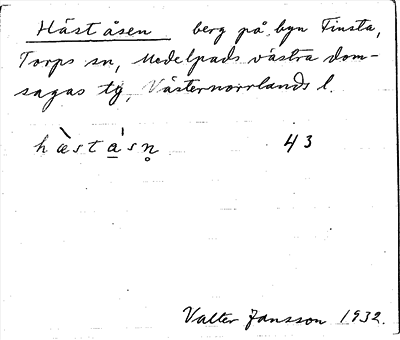 Häståsen berg på byn Finsta,
Torps sn, Medelpads västra dom-
sagas tg, Västernorrlands l.
hæ̀sta̲´sn̥ 43
Valter Jansson 1932.